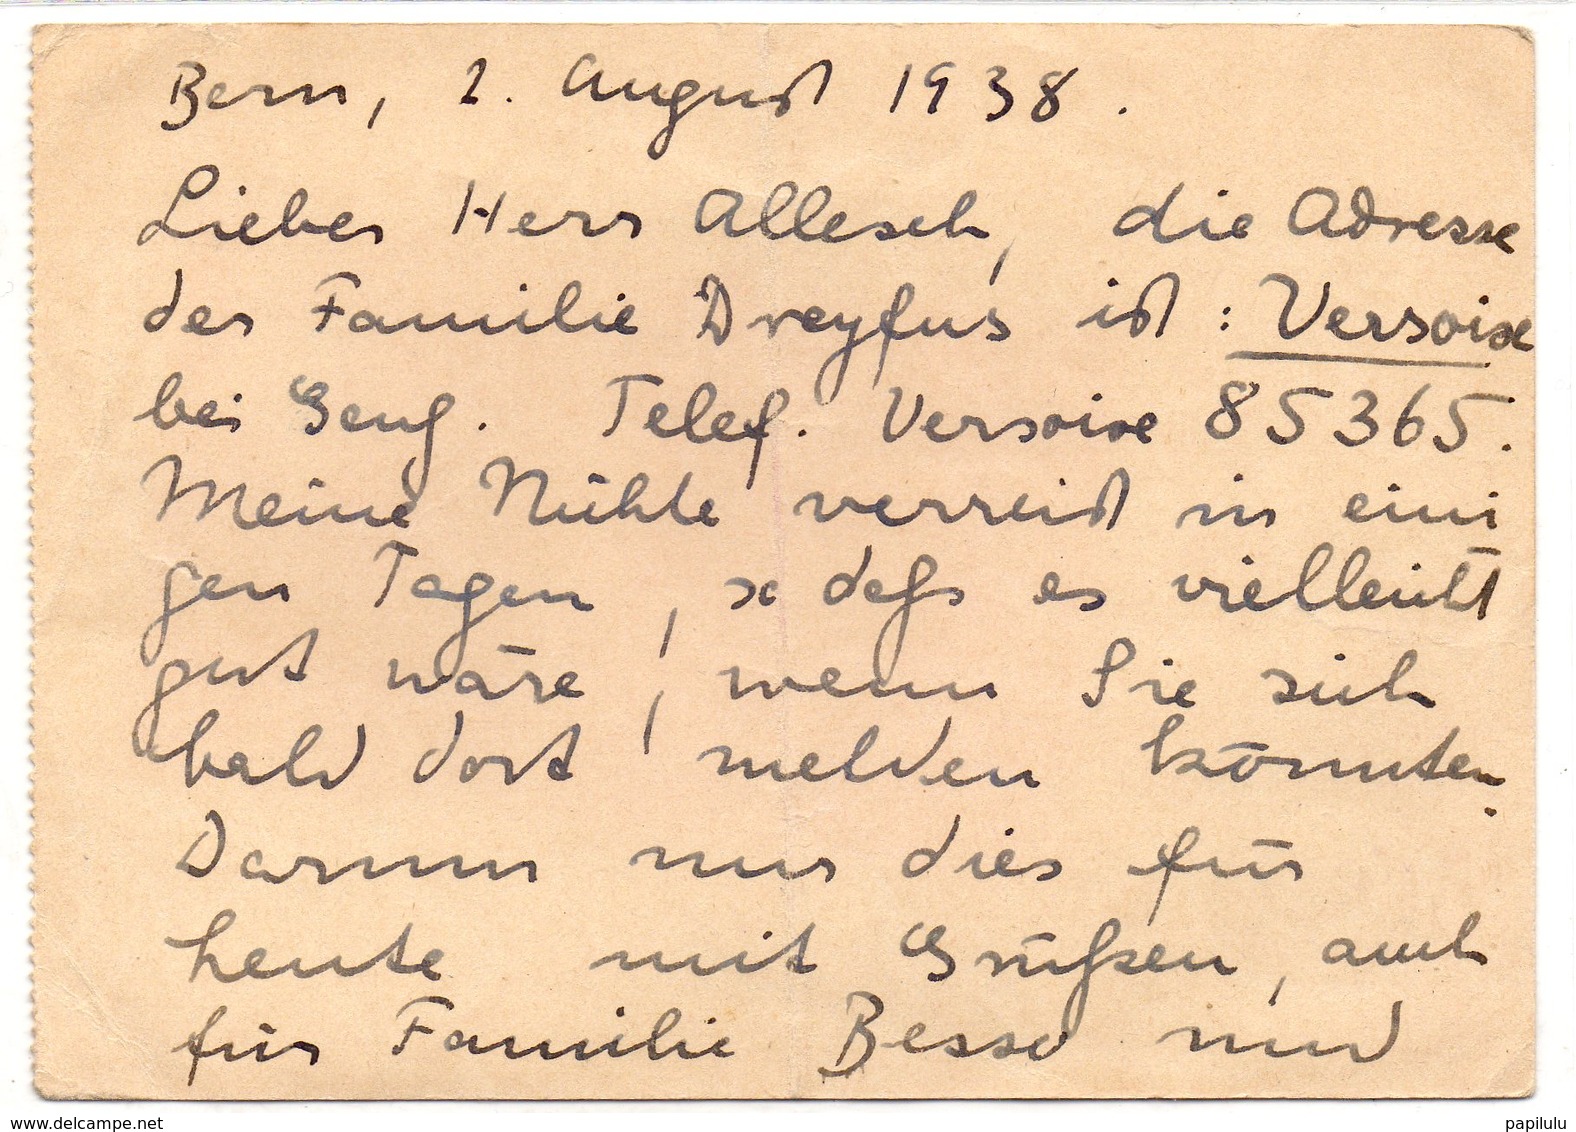 Bern, 2. August 1938.
Lieber Herr Allesch, die Adresse
der Familie Dreyfus ist: Versoix
bei Genf. Telef. Versoix 85365.
Meine Nichte verreist in eini
gen Tagen, so daß es vielleicht
gut wäre, wenn Sie sich
bald dort melden könnten.
Darum nur dies für
heute mit Grüßen, auch
für Familie Besso und
papilulu
www.delcampe.net